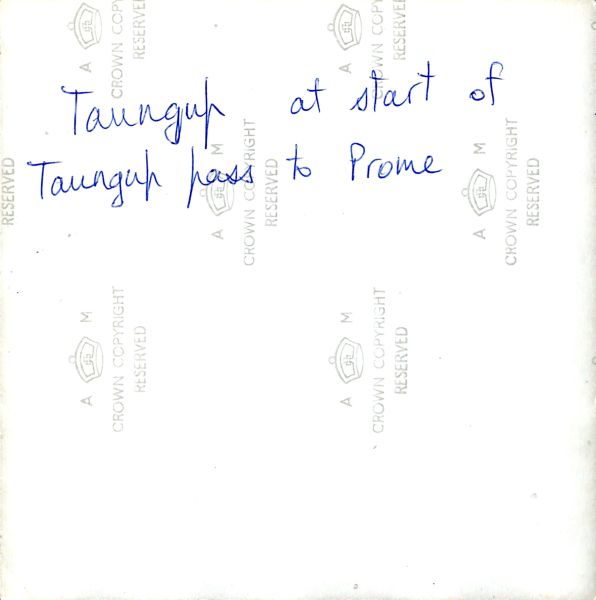 Taungup at start of
Taungup pass to Prome
A M
CROWN COPYRIGHT
RESERVED
A M
CROWN COPYRIGHT
RESERVED
RESERVED
A M
CROWN COPYRIGHT
RESERVED
A M
CROWN COPYRIGHT
RESERVED
A M
CROWN COPYRIGHT
RESERVED
A M
CROWN COPYRIGHT
RESERVED